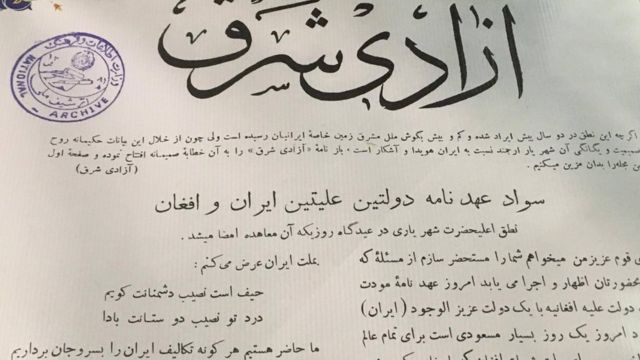 آزادی شرق
وزارت اطلاعات و فرهنگ
آرشیف ملی
NATIONAL
ARCHIVE
اگر چه این نطق در دو سال پیش ایراد شده و کم و بیش بگوش ملل مشرق زمین خاصهٔ ایرانیان رسیده است ولی چون از خلال این بیانات حکیمانه روح
صمیمیت و یگانگی آن شهر یار ارجمند نسبت به ایران هویدا و آشکار است ، باز نامهٔ «آزادی شرق» را به آن خطابهٔ صمیمانه افتتاح نموده و صفحهٔ اول
مجله را بدان مزین میکنیم .
(آزادی شرق)
سواد عهد نامه دولتین علیتین ایران و افغان
نطق اعلیحضرت شهر یاری در عیدگاه روزیکه آن معاهده امضا میشد .
قوم عزیز من میخواهم شما را مستحضر سازم از مسئلهٔ که
بحضورتان اظهار و اجرا می یابد امروز عهد نامهٔ مودت
دولت علیه افغانیه با یک دولت عزیز الوجود (ایران)
امروز یک روز بسیار مسعودی است برای تمام عالم
بملت ایران عرض می‌کنم :
حیف است نصیب دشمنانت گویم
درد تو نصیب دو ستانت بادا
ما حاضر هستیم هر گونه تکالیف ایران را بسروجان برداریم